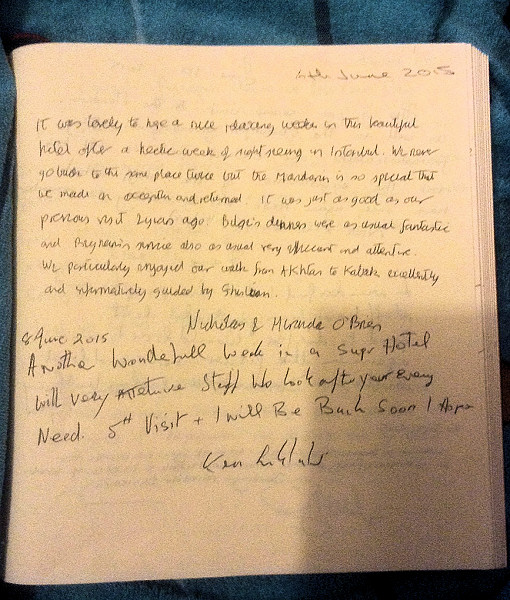 4th June 2015
It was lovely to have a nice relaxing week in this beautiful
hotel after a hectic week of sight seeing in Istanbul. We never
go back to the same place twice but the Mandarin is so special that
we made an exception and returned. It was just as good as our
previous visit 2 years ago. Bilge's dinners were as usual fantastic
and service also as usual very efficient and attentive.
We particularly enjoyed our walk from Akhtar to Kabak excellently
and informatively guided by
Nicholas & Miranda O'Brien
8 June 2015
Another Wonderfull Week in a Supr Hotel
with very Attetuive Staff Who Look after your Every
Need. 5th Visit + I will Be Back Soon I Hope
Ken